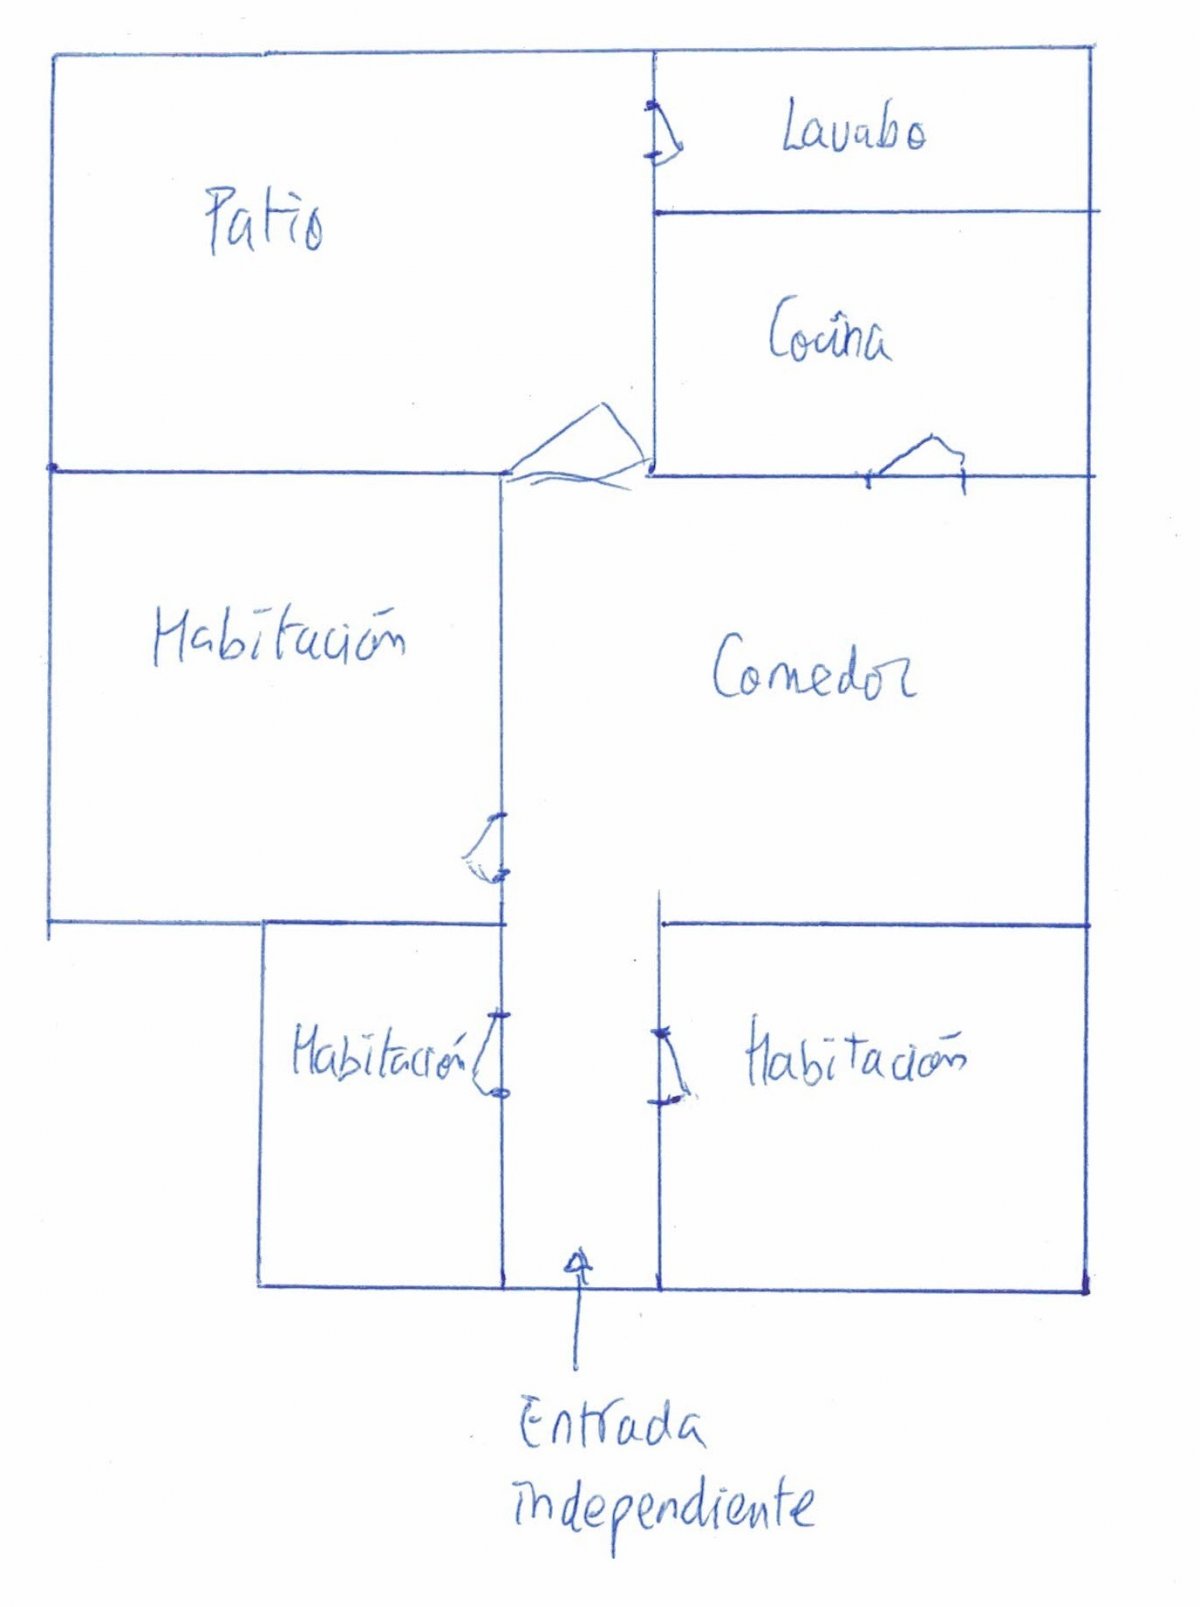 Lavabo
Patio
Cocina
Habitación
Comedor
Habitación
Habitación
Entrada
independiente